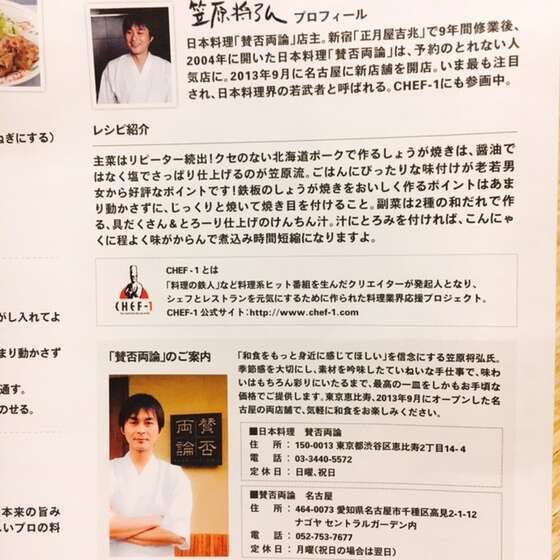 笠原将弘 プロフィール
日本料理「賛否両論」店主。新宿「正月屋吉兆」で9年間修業後、
2004年に開いた日本料理「賛否両論」は、予約のとれない人
気店に。2013年9月に名古屋に新店舗を開店。いま最も注目
され、日本料理界の若武者と呼ばれる。CHEF-1にも参画中。
ねぎにする)
レシピ紹介
主菜はリピーター続出!クセのない北海道ポークで作るしょうが焼きは、醤油で
はなく塩でさっぱり仕上げるのが笠原流。ごはんにぴったりな味付けが老若男
女から好評なポイントです!鉄板のしょうが焼きをおいしく作るポイントはあま
り動かさずに、じっくりと焼いて焼き目を付けること。副菜は2種の和だれで作
る、具だくさん&とろーり仕上げのけんちん汁。汁にとろみを付ければ、こんにゃ
くに程よく味がからんで煮込み時間短縮になりますよ。
CHEF-1
CHEF-1とは
「料理の鉄人」など料理系ヒット番組を生んだクリエイターが発起人となり、
シェフとレストランを元気にするために作られた料理業界応援プロジェクト。
CHEF-1 公式サイト:http://www.chef-1.com
がし入れてよ
まり動かさず
通す。
のせる。
本来の旨み
しいプロの料
「賛否両論」のご案内
賛否
両論
「和食をもっと身近に感じてほしい」を信念にする笠原将弘氏。
季節感を大切にし、素材を吟味したていねいな手仕事で、味わ
いはもちろん彩りにいたるまで、最高の一皿をしかもお手頃な
価格でご提供します。東京恵比寿、2013年9月にオープンした名
古屋の両店舗で、気軽に和食をお楽しみください。
■日本料理 賛否両論
住 所 : 150-0013 東京都渋谷区恵比寿2丁目14-4
電 話 : 03-3440-5572
定休日 : 日曜、祝日
■賛否両論 名古屋
住 所 : 464-0073 愛知県名古屋市千種区高見2-1-12
ナゴヤ セントラルガーデン内
電 話 : 052-753-7677
定休日 : 月曜(祝日の場合は翌日)